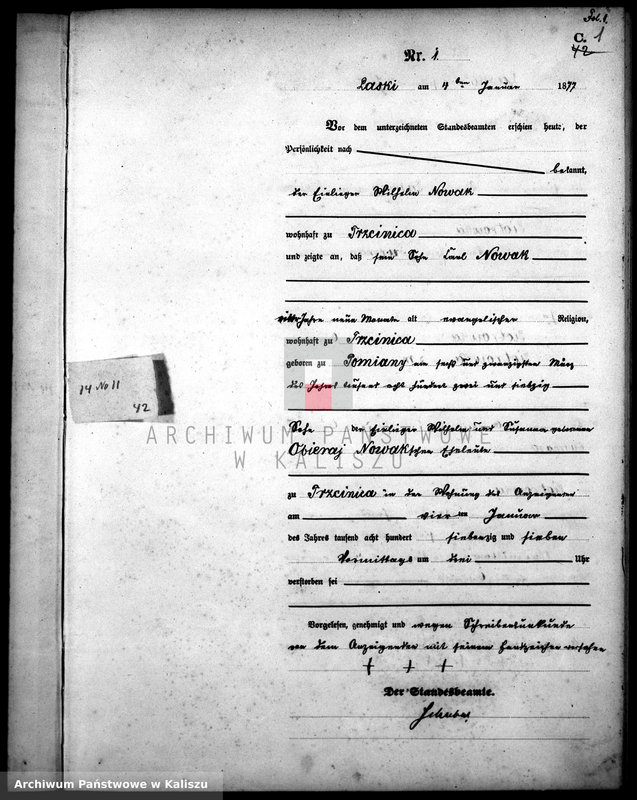 Fol. 1.
C. 1
42
Nr. 1.
Laski am 4ten Januar 1877
Vor dem unterzeichneten Standesbeamten erschien heute, der
Persönlichkeit nach
bekannt,
der Einlieger Wilhelm Nowak
wohnhaft zu Trzcinica
und zeigte an, daß sein Sohn Carl Nowak
vier Jahre neun Monate alt evangelischer Religion,
wohnhaft zu Trzcinica
geboren zu Pomiany am sechs und zwanzigsten März
des Jahres tausend acht hundert zwei und siebzig
Sohn der Einlieger Wilhelm und Susanna geborenen
Obieraj Nowakschen Eheleute
zu Trzcinica in der Wohnung des Anzeigenden
am vierten Januar
des Jahres tausend acht hundert siebenzig und sieben
Vormittags um drei Uhr
verstorben sei
14 No 11
42
ARCHIWUM PAŃSTWOWE
W KALISZU
Vorgelesen, genehmigt und wegen Schreibensunkunde
von dem Anzeigenden mit seinem Handzeichen versehen
+ + +
Der Standesbeamte.
Archiwum Państwowe w Kaliszu